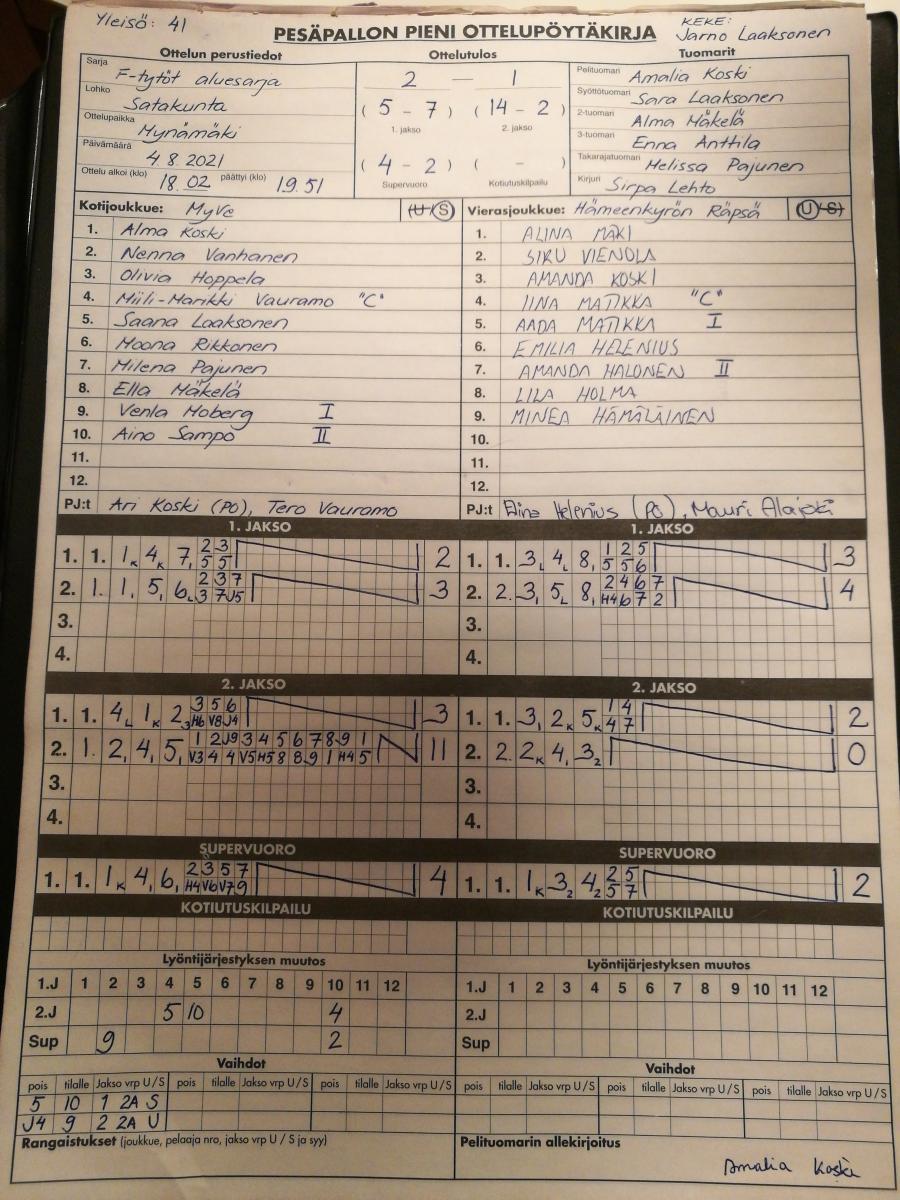 Yleisö: 41
PESÄPALLON PIENI OTTELUPÖYTÄKIRJA
KEKE: Jarno Laaksonen
Ottelun perustiedot
Sarja F-tytöt aluesarja
Lohko Satakunta
Ottelupaikka Mynämäki
Päivämäärä 4.8.2021
Ottelu alkoi (klo) 18.02 päättyi (klo) 19.51
Ottelutulos
2 — 1
( 5 - 7 ) ( 14 - 2 )
1. jakso 2. jakso
( 4 - 2 ) ( - )
Supervuoro Kotiutuskilpailu
Tuomarit
Pelituomari Amalia Koski
Syöttötuomari Sara Laaksonen
2-tuomari Alma Mäkelä
3-tuomari Enna Anttila
Takarajatuomari Melissa Pajunen
Kirjuri Sirpa Lehto
Kotijoukkue: MyVe (U/S)
1. Alma Koski
2. Nenna Vanhanen
3. Olivia Hoppela
4. Miili-Marikki Vauramo "C"
5. Saana Laaksonen
6. Moona Rikkonen
7. Milena Pajunen
8. Ella Mäkelä
9. Venla Moberg I
10. Aino Sampo II
11.
12.
PJ:t Ari Koski (PO), Tero Vauramo
Vierasjoukkue: Hämeenkyrön Räpsä (U/S)
1. ALINA MÄKI
2. SIRU VIENOLA
3. AMANDA KOSKI
4. IINA MATIKKA "C"
5. AADA MATIKKA I
6. EMILIA HELENIUS
7. AMANDA HALONEN II
8. LILA HOLMA
9. MINEA HÄMÄLÄINEN
10.
11.
12.
PJ:t Helenius (PO), Mauri
1. JAKSO
1. 1. 1K 4K 7, 2 3 2
5 5
2. 1. 1, 5, 6L 2 3 7 3
3 7 J5
3.
4.
1. JAKSO
1. 1. 3L 4L 8, 1 2 5 3
5 5 6
2. 2. 3, 5L 8, 2 4 6 7 4
H4 6 7 2
3.
4.
2. JAKSO
1. 1. 4L 1K 2 3 3 5 6 3
H6 V8 J4
2. 1. 2, 4, 5, 1 2 J9 3 4 5 6 7 8 9 1 11
V3 4 4 V5 H5 8 8 9 1 H4 5
3.
4.
2. JAKSO
1. 1. 3, 2K 5K 1 4 2
4 7
2. 2. 2K 4, 3 2 0
3.
4.
SUPERVUORO
1. 1. 1K 4, 6, 2 3 5 7 4
H4 V6 V7 9
SUPERVUORO
1. 1. 1K 3 2 4 2 2 5 2
5 7
KOTIUTUSKILPAILU
KOTIUTUSKILPAILU
Lyöntijärjestyksen muutos
1.J 1 2 3 4 5 6 7 8 9 10 11 12
2.J 5 10 4
Sup 9 2
Lyöntijärjestyksen muutos
1.J 1 2 3 4 5 6 7 8 9 10 11 12
2.J
Sup
Vaihdot
pois tilalle Jakso vrp U/S pois tilalle Jakso vrp U/S pois tilalle Jakso vrp U/S
5 10 1 2A S
J4 9 2 2A U
Vaihdot
pois tilalle Jakso vrp U/S pois tilalle Jakso vrp U/S pois tilalle Jakso vrp U/S
Rangaistukset (joukkue, pelaaja nro, jakso vrp U / S ja syy)
Pelituomarin allekirjoitus
Amalia Koski